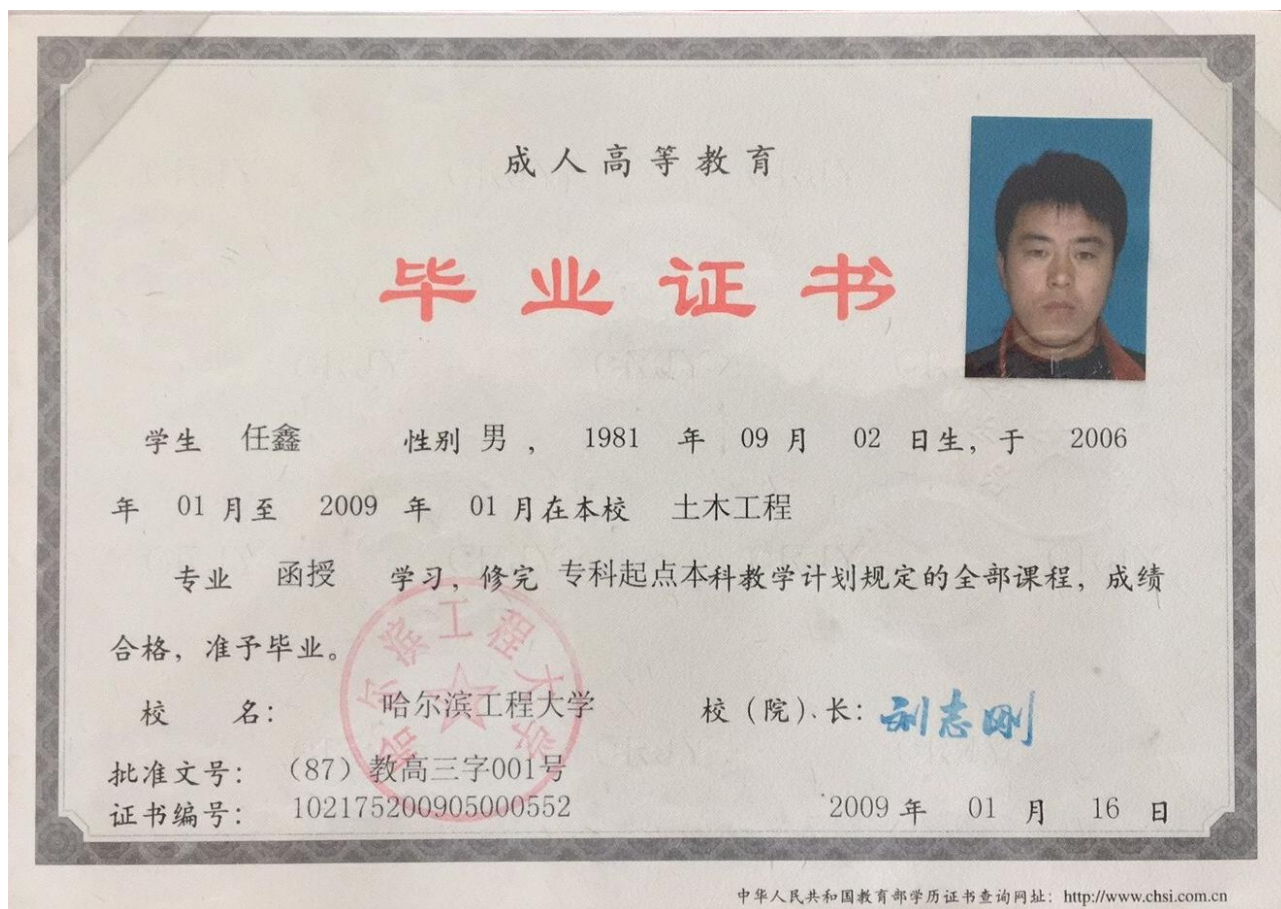 成人高等教育
毕业证书
学生 任鑫 性别 男 ， 1981 年 09 月 02 日生，于 2006
年 01 月至 2009 年 01 月在本校 土木工程
专业 函授 学习，修完 专科起点本科教学计划规定的全部课程，成绩
合格，准予毕业。
哈尔滨工程大学
校 名： 哈尔滨工程大学 校（院）长： 刘志刚
批准文号： （87）教高三字001号
证书编号： 102175200905000552 2009 年 01 月 16 日
中华人民共和国教育部学历证书查询网址：http://www.chsi.com.cn